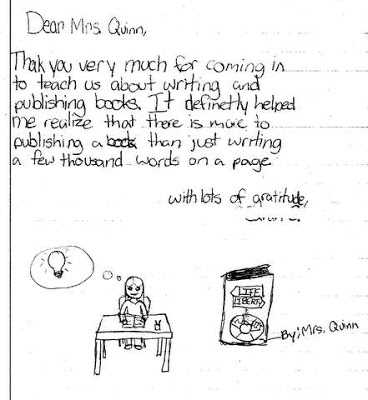 Dear Mrs. Quinn,
Thak you very much for coming in
to teach us about writing and
publishing books. It definetly helped
me realize that there is more to
publishing a book than just writing
a few thousand words on a page
with lots of gratitude,
LIFE
LIBERTY
By; Mrs. Quinn